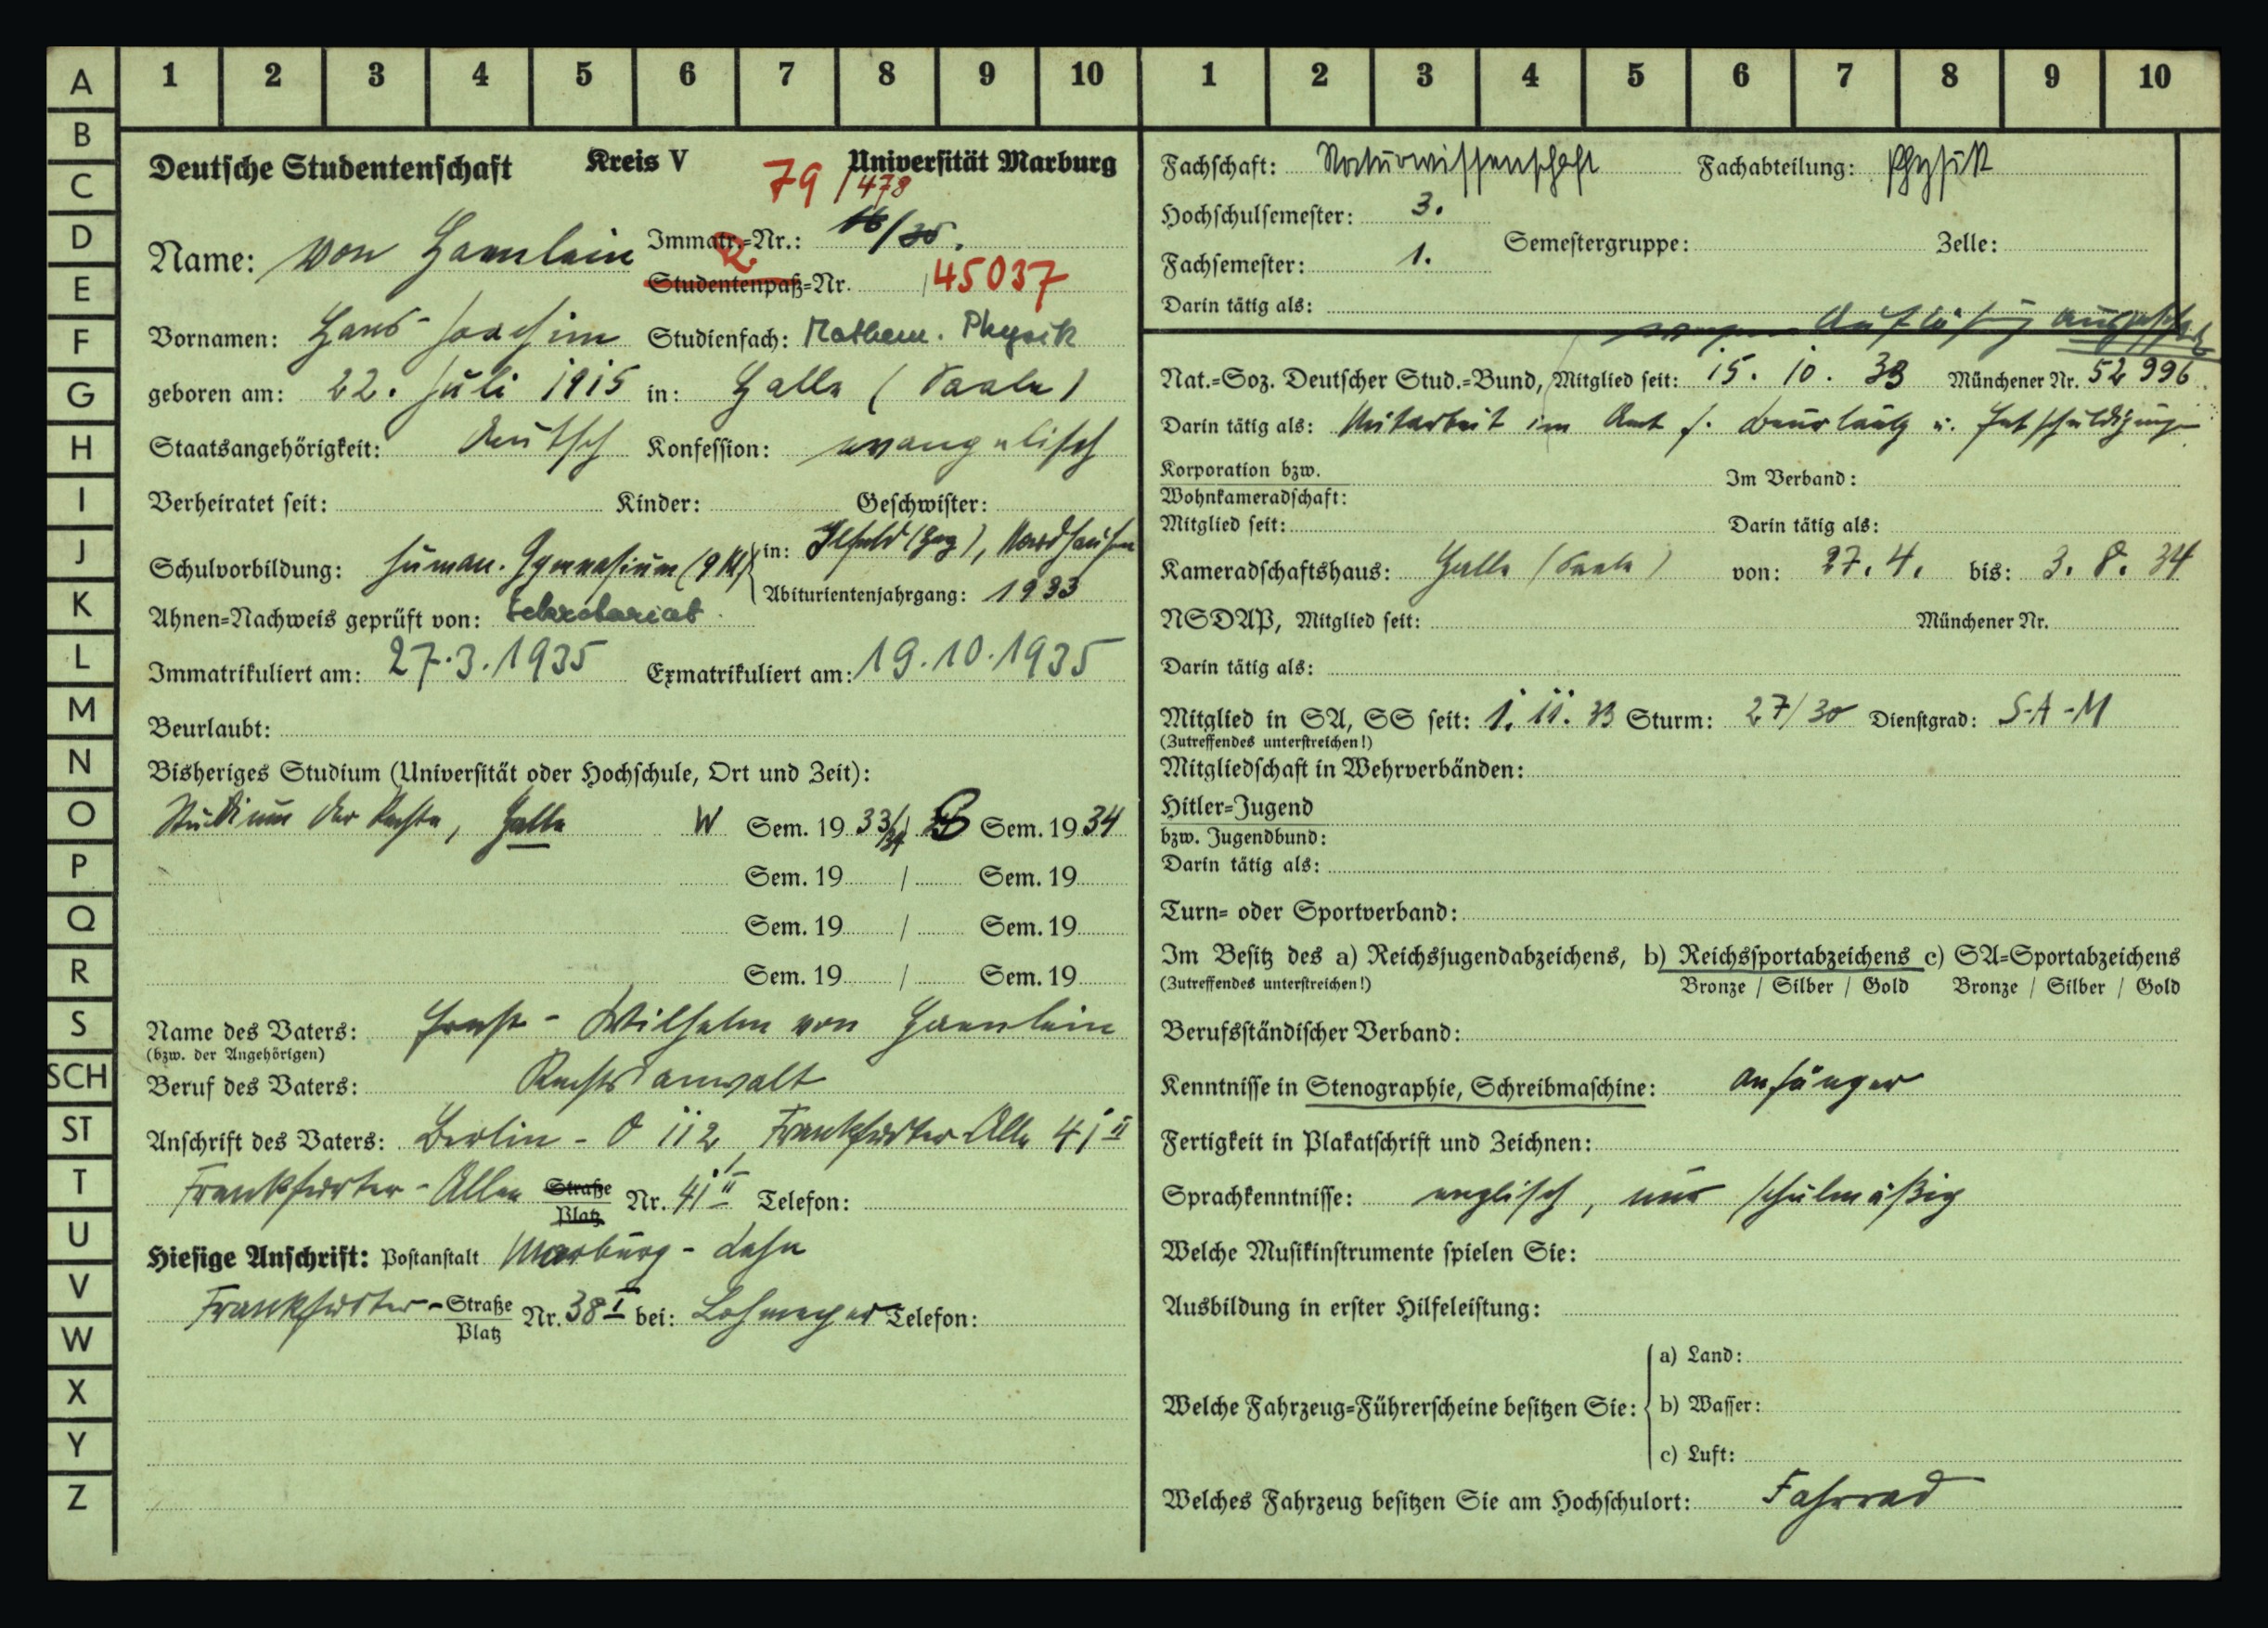 A 1 2 3 4 5 6 7 8 9 10 1 2 3 4 5 6 7 8 9 10
B
C
D
E
F
G
H
I
J
K
L
M
N
O
P
Q
R
S
SCH
ST
T
U
V
W
X
Y
Z
Deutsche Studentenschaft Kreis V Universität Marburg
79/478
Name: von Haenlein Immatr.-Nr.: 16/35.
R
Studentenpaß-Nr. 45037
Vornamen: Hans-Joachim Studienfach: Mathem. Physik
geboren am: 22. Juli 1915 in: Halle (Saale)
Staatsangehörigkeit: deutsch Konfession: evangelisch
Verheiratet seit: Kinder: Geschwister:
Schulvorbildung: human. Gymnasium (9 Kl) in: Ilfeld (Hrz), Nordhausen
Abiturientenjahrgang: 1933
Ahnen-Nachweis geprüft von: Sekretariat
Immatrikuliert am: 27.3.1935 Exmatrikuliert am: 19.10.1935
Beurlaubt:
Bisheriges Studium (Universität oder Hochschule, Ort und Zeit):
Studium der Rechte, Halle W Sem. 19 33/34 / S Sem. 19 34
Sem. 19 / Sem. 19
Sem. 19 / Sem. 19
Sem. 19 / Sem. 19
Name des Vaters: Ernst-Wilhelm von Haenlein
(bzw. der Angehörigen)
Beruf des Vaters: Rechtsanwalt
Anschrift des Vaters: Berlin-O 112, Frankfurter Alle 41 II
Frankfurter-Allee Straße Platz Nr. 41 II Telefon:
Hiesige Anschrift: Postanstalt Marburg-Lahn
Frankfurter-Straße Platz Nr. 38 I bei: Lohmeyer Telefon:
Fachschaft: Naturwissenschaft Fachabteilung: Physik
Hochschulsemester: 3.
Semestergruppe: Zelle:
Fachsemester: 1.
Darin tätig als:
Auflösung
Nat.-Soz. Deutscher Stud.-Bund, Mitglied seit: 15. 10. 33 Münchener Nr. 52 996
Darin tätig als: Mitarbeit im Amt f. Beurlaubg u. Entschuldigung
Korporation bzw.
Wohnkameradschaft: Im Verband:
Mitglied seit: Darin tätig als:
Kameradschaftshaus: Halle (Saale) von: 27.4. bis: 3.8.34
NSDAP, Mitglied seit: Münchener Nr.
Darin tätig als:
Mitglied in SA, SS seit: 1. 11. 33 Sturm: 27/30 Dienstgrad: S-A-M
(Zutreffendes unterstreichen!)
Mitgliedschaft in Wehrverbänden:
Hitler-Jugend
bzw. Jugendbund:
Darin tätig als:
Turn- oder Sportverband:
Im Besitz des a) Reichsjugendabzeichens, b) Reichssportabzeichens c) SA-Sportabzeichens
(Zutreffendes unterstreichen!) Bronze / Silber / Gold Bronze / Silber / Gold
Berufsständischer Verband:
Kenntnisse in Stenographie, Schreibmaschine: Anfänger
Fertigkeit in Plakatschrift und Zeichnen:
Sprachkenntnisse: englisch, nur schulmäßig
Welche Musikinstrumente spielen Sie:
Ausbildung in erster Hilfeleistung:
a) Land:
Welche Fahrzeug-Führerscheine besitzen Sie: b) Wasser:
c) Luft:
Welches Fahrzeug besitzen Sie am Hochschulort: Fahrrad